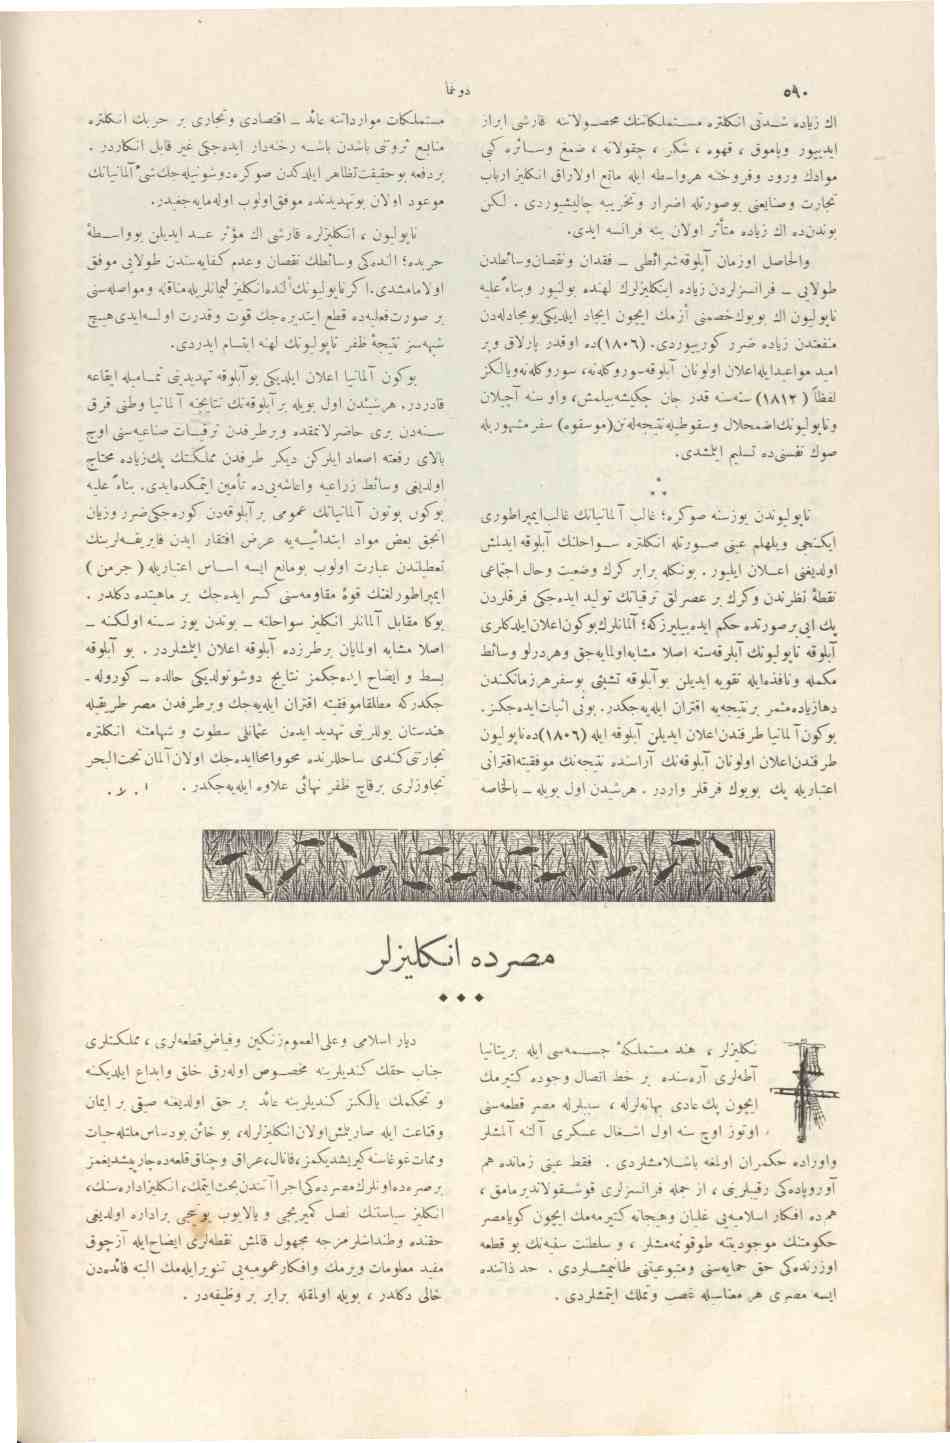 ٥٩٠
دونما
اك زیاده شدتی انكلتره مستملكاتنك محصولاتنه قارشی ابراز
ایدییور وپاموق ، قهوه ، شكر ، چقولاته ، صمغ وسائره كبی
موادك ورود وفروختنه هرواسطه ایله مانع اولارق انكلیز ارباب
تجارت وصنایعنی بوصورتله اضرار وتخریبه چالیشیوردی . لكن
بوندن‌ده اك زیاده متأثر اولان ینه فرانسه ایدی.
والحاصل اوزمان آبلوقه شرائطی ــ فقدان ونقصان‌وسائطدن
طولایی ــ فرانسزلردن زیاده اینكلیزلرك لهنده بولنیور وبناءً علیه
ناپولیون اك بویوك‌خصمنی ازمك ایچون ایجاد ایلدیكی‌بومجادله‌دن
منفعتدن زیاده ضرر كورییوردی. (١٨٠٦)ده اوقدر پارلاق وپر
امید مواعیدایله‌اعلان اولونان آبلوقه-سوروكلنه، سوروكلنه‌ویالكز
لفظاً ( ١٨١٢ ) سنه‌سنه قدر جان چكیشه‌بیلمش، واو سنه آچیلان
وناپولیونك‌اضمحلال وسقوطیله‌نتیجه‌لنن(موسقوه) سفر مشهوریله
صوك نفسنی‌ده تسلیم ایلشدی.
* * *
ناپولیوندن یوزسنه صوكره؛ غالب آلمانیانك غالب‌ایمپراطوری
ایكنجی ویلهلم عینی صورتله انكلتره سواحلنك آبلوقه ایدلمش
اولدیغنی اعلان ایلیور . بونكله برابر كرك وضعیت وحال اجتماعی
نقطهٔ نظرندن وكرك بر عصرلق ترقیاتك تولید ایده‌جكی فرقلردن
پك ایی‌برصورتده حكم ایده‌بیلیرزكه؛ آلمانلرك‌بوكون‌اعلان‌ایلدكلری
آبلوقه ناپولیونك آبلوقه‌سنه اصلا مشابه‌اولمایه‌جق وهردرلو وسائط
مكمله ونافذه‌ایله تقویه ایدیلن بوآبلوقه تشبثی بوسفرهرزمانكندن
دهازیاده‌مثمر برنتیجه‌یه اقتران ایلیه‌جكدر. بونی اثبات‌ایده‌جكز.
بوكون‌آلمانیا طرفندن‌اعلان ایدیلن آبلوقه ایله (١٨٠٦)ده‌ناپولیون
طرفندن‌اعلان اولونان آبلوقه‌نك آراسنده نتیجه‌نك موفقیته‌اقترانی
اعتباریله پك بویوك فرقلر واردر . هرشیدن اول بویله ــ بالخاصه
مستملكات موارداتنه عائد ــ اقتصادی وتجاری بر حربك انكلتره
منابع ثروتنی باشدن باشه رخنه‌دار ایده‌جكی غیر قابل انكاردر .
بردفعه بوحقیقت‌تظاهر ایلدكدن صوكره‌دوشونیله‌جك‌شی آلمانیانك
موعود اولان بوتهدیدنده موفق‌اولوب اوله‌مایه‌جغیدر.
ناپولیون ، انكلیزلره قارشی اك مؤثر عد ایدیلن بوواسطهٔ
حربده؛ النده‌كی وسائطك نقصان وعدم كفایه‌سندن طولایی موفق
اولامامشدی.اكرناپولیونك‌ألنده‌انكلیز لیمانلریله‌مناقله ومواصله‌سنی
بر صورت‌فعلیه‌ده قطع ایتدیره‌جك قوت وقدرت اولسه‌ایدی‌هیچ
شبهه‌سز نتیجهٔ ظفر ناپولیونك لهنه ابتسام ایدردی.
بوكون آلمانیا اعلان ایلدیكی بوآبلوقه تهدیدینی تمامیله ایقاعه
قادردر. هرشیئدن اول بویله برآبلوقه‌نك نتایجنه آلمانیا وطنی قرق
سنه‌دن بری حاضرلانمقده وبرطرفدن ترقیات صناعیه‌سنی اوج
بالای رفعته اصعاد ایلركن دیكر طرفدن مملكتك پك‌زیاده محتاج
اولدیغی وسائط زراعیه واعاشه‌یی‌ده تأمین ایتمكده‌ایدی. بناءً علیه
بوكون بوتون آلمانیانك عمومی برآبلوقه‌دن كوره‌جكی‌ضرر وزیان
انجق بعض مواد ابتدائیه‌یه عرض افتقار ایدن فابریقه‌لرینك
تعطیلندن عبارت اولوب بومانع ایسه اساس اعتباریله ( جرمن )
ایمپراطورلغنك قوهٔ مقاومه‌سنی كسر ایده‌جك بر ماهیتده دكلدر .
بوكا مقابل آلمانلر انكلیز سواحلنه ــ بوندن یوز سنه اولكنه ــ
اصلا مشابه اولمایان برطرزده آبلوقه اعلان ایلشلردر . بو آبلوقه
بسط و ایضاح ایده‌جكمز نتایج دوشونولدیكی حالده ــ كورولهـ
جكدركه مطلقاموفقیته اقتران ایلیه‌جك وبرطرفدن مصر طریقیله
هندستان یوللرینی تهدید ایده‌ن عثمانلی سطوت و شهامتنه انكلتره
تجارتنی‌كندی ساحللرنده محوواعاایده‌جك اولان‌آلمان تحت‌البحر
تجاوزلری برقاچ ظفر نهائی علاوه ایلیه‌جكدر .
مصرده انكلیزلر
نكلیزلر ، هند مستملكهٔ جسیمه‌سی ایله بریتانیا
آطه‌لری آره‌سنده بر خط اتصال وجوده كتیرمك
ایچون پك عادی بهانه‌لرله ، سببلرله مصر قطعه‌سنی
اوتوز اوچ سنه اول اشغال عسكری آلتنه آلمشلر
واوراده حكمران اولمغه باشلامشلردی . فقط عینی زمانده هم
آوروپاده‌كی رقیبلرینی ، از جمله فرانسزلری قوشقولاندیرمامق ،
هم‌ده افكار اسلامیه‌یی غلیان وهیجانه‌كتیرمه‌مك ایچون كویامصر
حكومتنك موجودیتنه طوقونمه‌مشلر ، و سلطنت سنیه‌نك بو قطعه
اوزرنده‌كی حق حمایه‌سنی ومتبوعیتنی طانیمشلردی . حد ذاتنده
ایسه مصری هر معناسیله غصب وتملك ایتمشلردی .
دیار اسلامی وعلی‌العموم‌زنكین وفیاض‌قطعه‌لری ، مملكتلری
جناب حقك كندیلرینه مخصوص اوله‌رق خلق وابداع ایلدیكنه
و تحكمك یالكز كندیلرینه عائد بر حق اولدیغنه صیقی بر ایمان
وقناعت ایله صاریلمش‌اولان‌انكلیزلرله، بو خائن بودساس‌ملتله‌حیات
وممات‌غوغاسنه‌كیریشدیكمز،قانال،عراق وچناق‌قلعه‌ده‌چارپیشدیغمز
برصره‌ده‌اونلرك‌مصرده‌كی‌اجراآتندن‌بحث‌ایتمك،انكلیزاداره‌سنك،
انكلیز سیاستنك نصل كمیریجی و یالایوب یوتحی براداره اولدیغی
حقنده وطنداشلرمزجه مجهول قالمش نقطه‌لری ایضاح‌ایله آزچوق
مفید معلومات ویرمك وافكارعمومیه‌یی تنویرایله‌مك البته فائده‌دن
خالی دكلدر ، بویله اولمقله برابر بر وظیفه‌در .